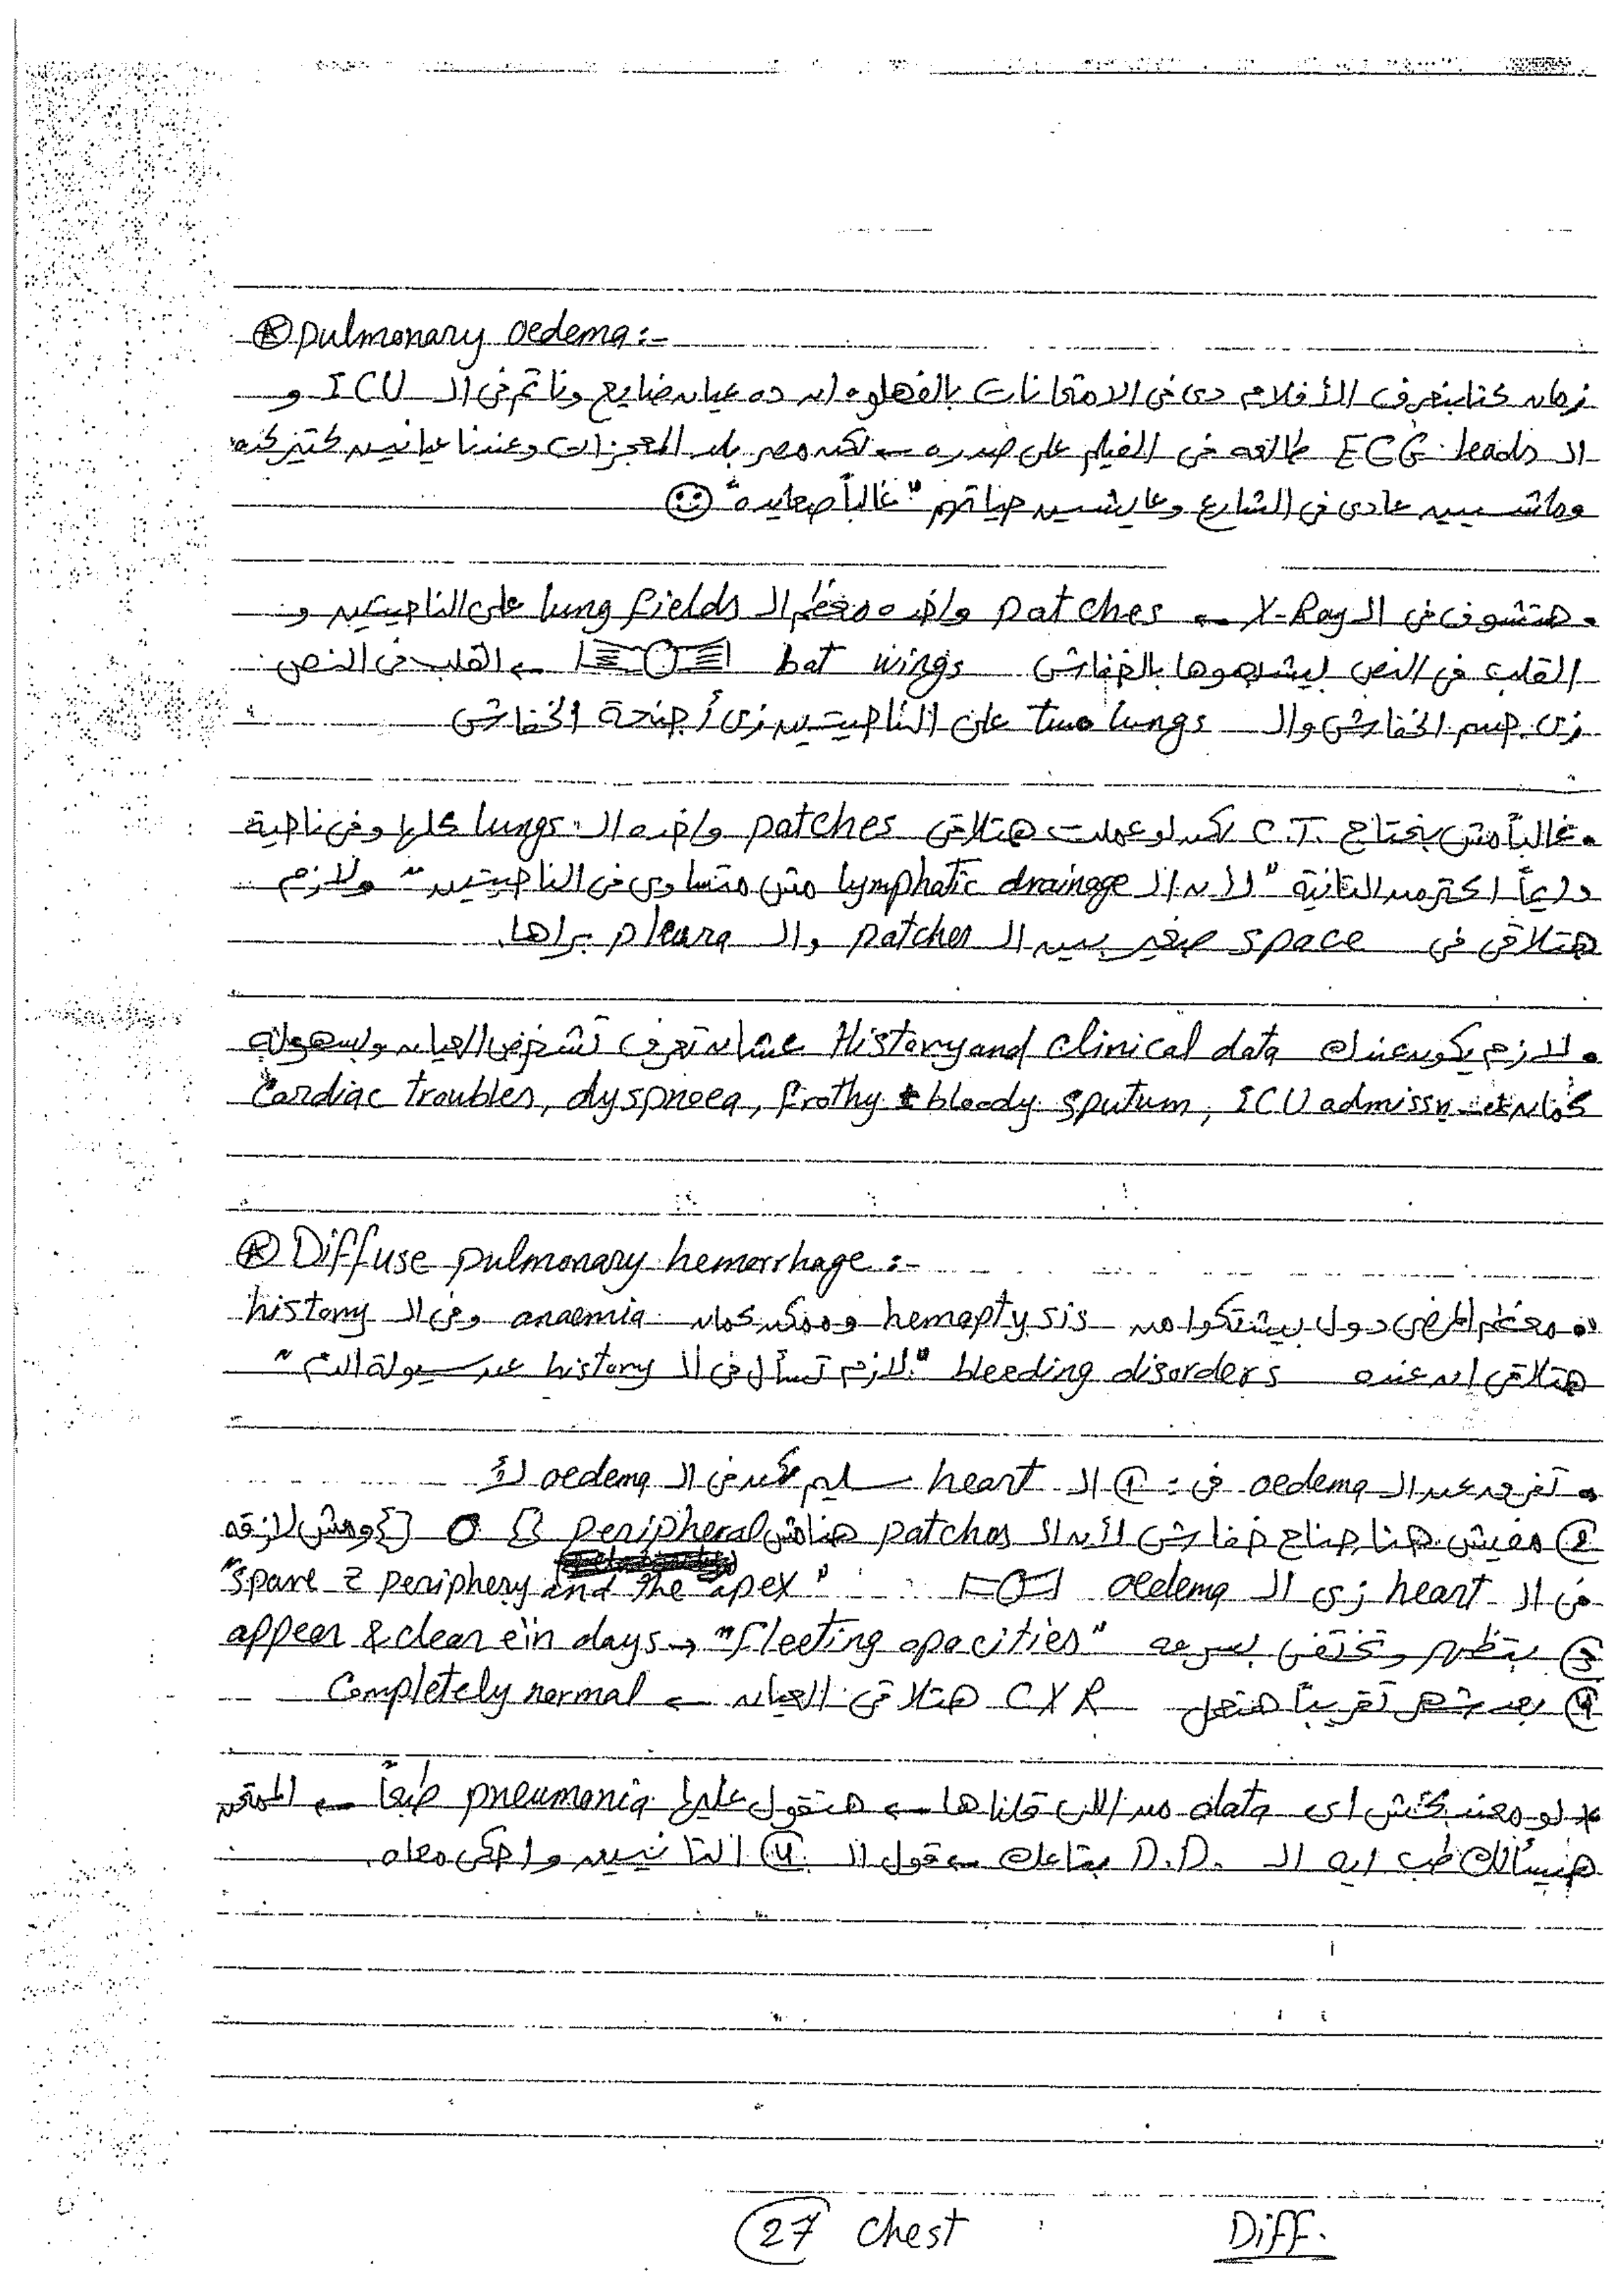 Ⓚ pulmonary oedema:-
زمان كنا بنعرف الأفلام دى فى الامتحانات بالفهلوه ان ده عيان ضايع ونايم فى الـ ICU و
الـ ECG leads طالعه فى الفيلم على صدره ← لكن مصر بلد المعجزات وعندنا عيانين كتير كده
وماشيين عادى فى الشارع وعايشين حياتهم "غالباً صعايده"
• هتشوف فى الـ X-Ray ← patches واخده معظم الـ lung fields على الناحيتين و
القلب فى النص بيشبهوها بالخفاش bat wings ← القلب فى النص
زى جسم الخفاش والـ two lungs على الناحيتين زى أجنحة الخفاش
• غالباً مش بنحتاج C.T. لكن لو عملت هتلاقى patches واخده الـ lungs كلها وفى ناحية
دايماً اكتر من التانية "لأن الـ lymphatic drainage مش متساوى فى الناحيتين" ولازم
هتلاقى فى space صغير بين الـ patches والـ pleura براها.
• لازم يكون عندك History and clinical data عشان تعرف تشخص العيان وبسهولة
كمان Cardiac troubles, dyspnoea, frothy bloody sputum, ICU admissn
Ⓚ Diffuse pulmonary hemorrhage:-
• معظم المرضى دول بيشتكوا من hemoptysis وممكن كمان anaemia وفى الـ history
هتلاقى ان عنده bleeding disorders "لازم تسأل فى الـ history عن سيولة الدم"
• تفرق عن الـ oedema فى: ① الـ heart سليم عكس الـ oedema
② مفيش هنا جناح خفاش لأن الـ patches هنا مش peripheral ومش لازقه
فى الـ heart زى الـ oedema "spare c̄ periphery and the apex"
③ بتظهر وتختفى بسرعه appear & clear ein days → "fleeting opacities"
④ بعد شهر تقريباً هتعمل CXR هتلاقى العيان ← Completely normal
* لو معندكش اى data من اللى قلناها ← هتقول عليها pneumonia طبعاً ← الممتحن
هيسألك طب ايه الـ D.D. بتاعك ← قول الـ ④ التانيين واحكى معاه.
㉗ Chest Diff.